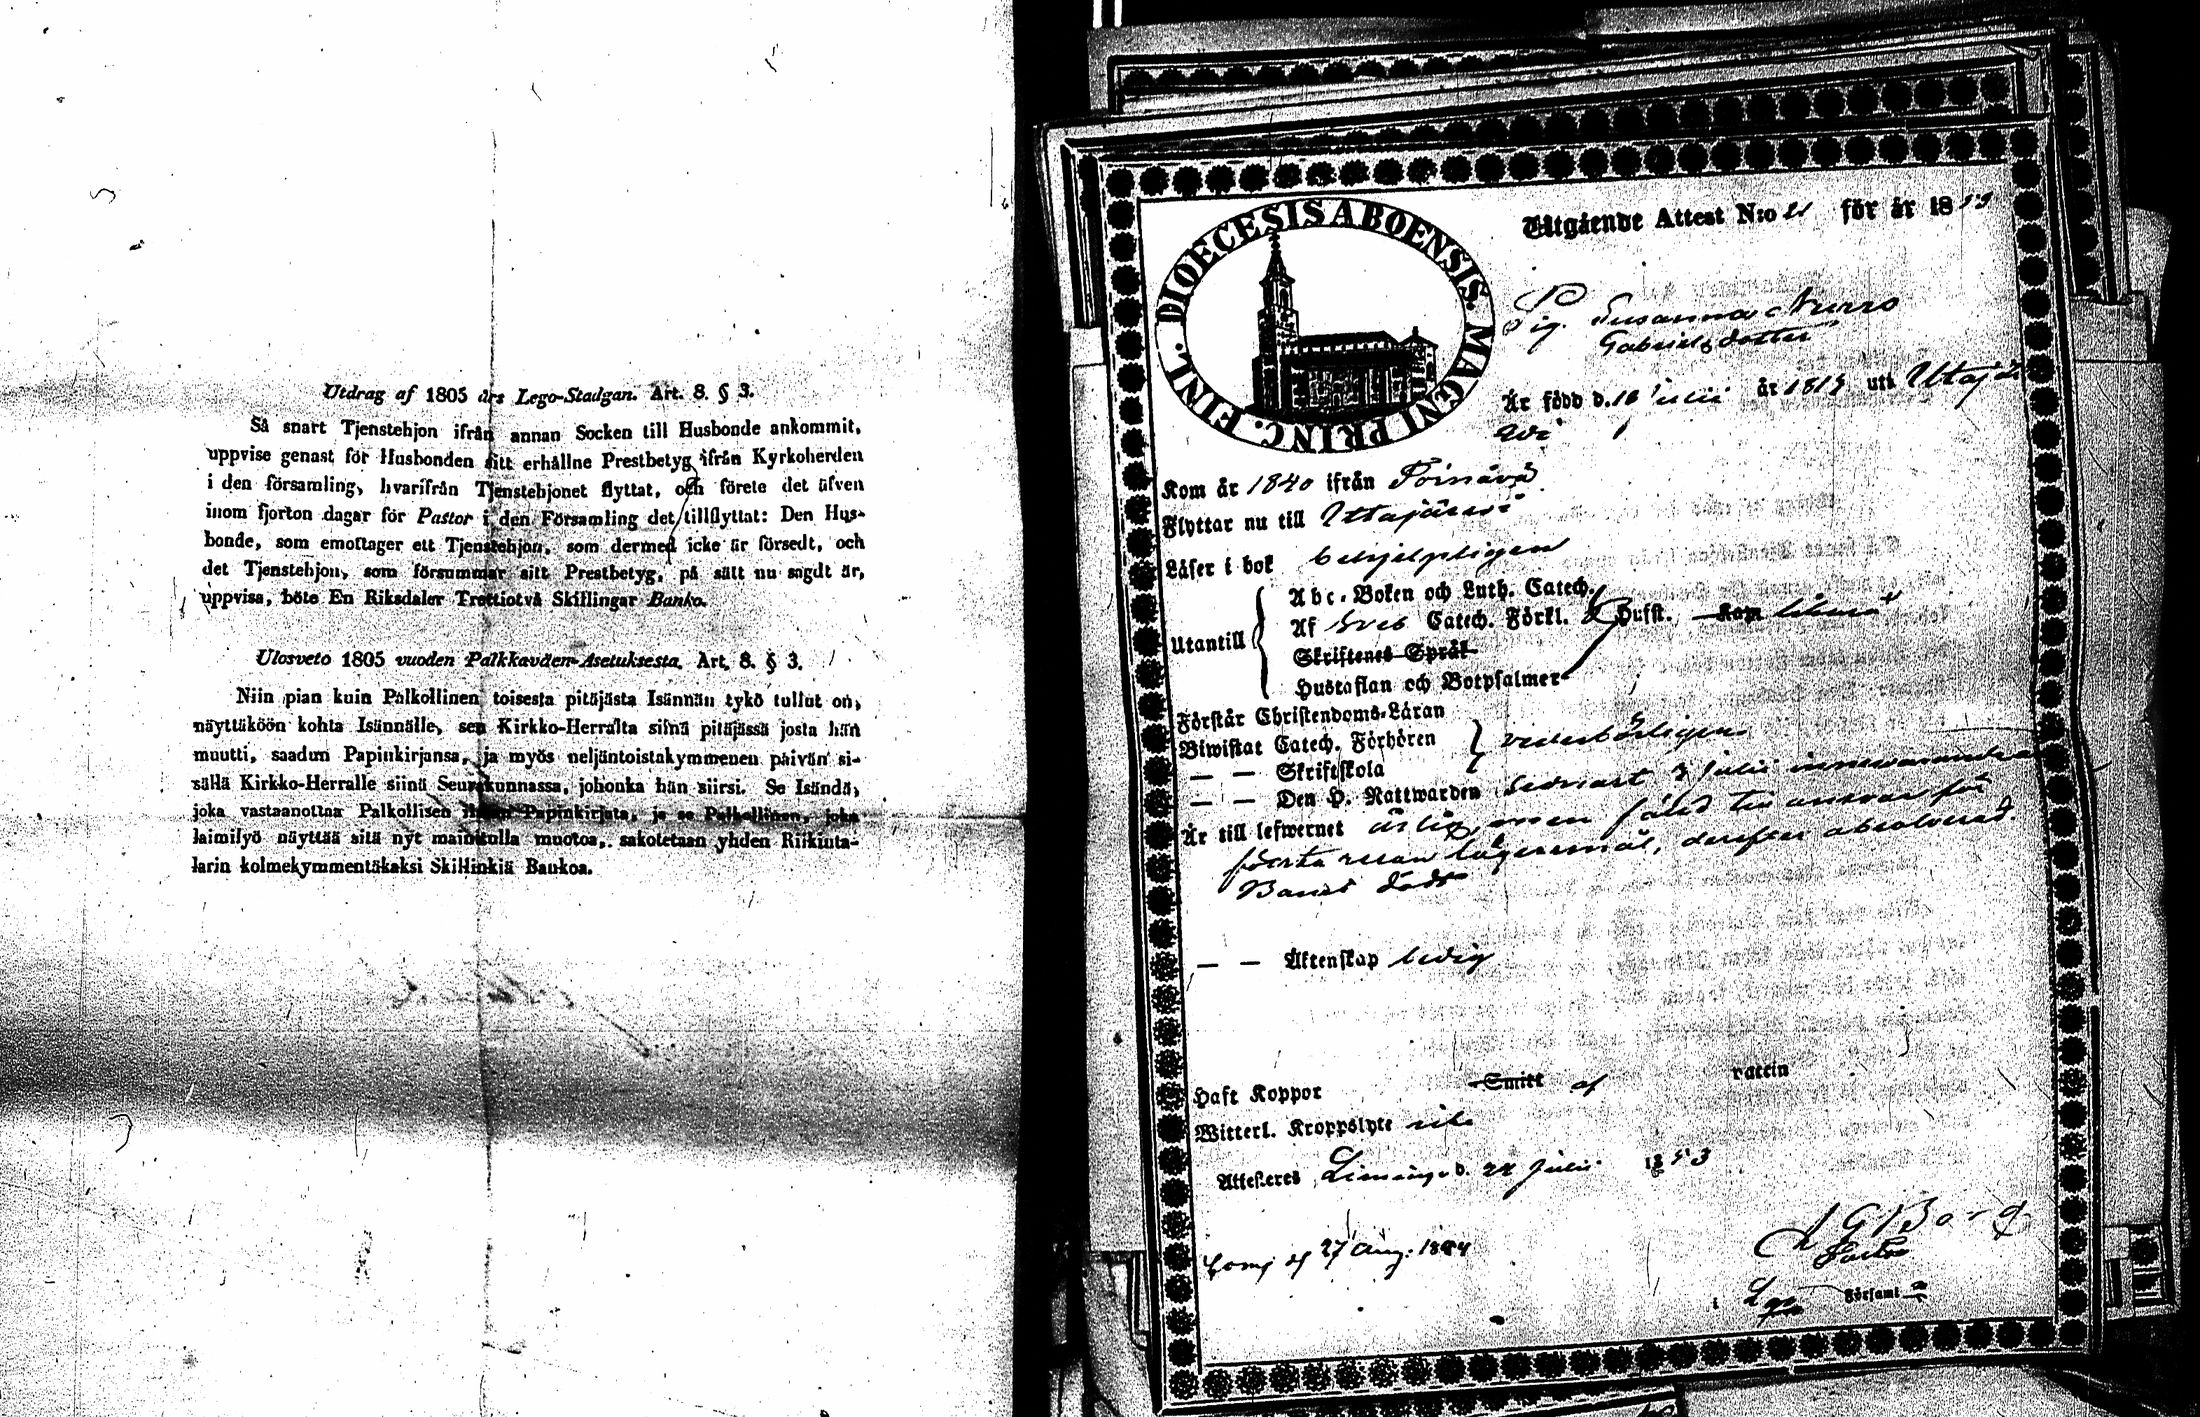 Utdrag af 1805 års Lego-Stadgan. Art. 8. § 3.
Så snart Tjenstehjon ifrån annan Socken till Husbonde ankommit,
uppvise genast för Husbonden sitt erhållne Prestbetyg ifrån Kyrkoherden
i den församling, hvarifrån Tjenstehjonet flyttat, och förete det äfven
inom fjorton dagar för Pastor i den Församling det tillflyttat: Den Hus-
bonde, som emottager ett Tjenstehjon, som dermed icke är försedt, och
det Tjenstehjon, som försummar sitt Prestbetyg, på sätt nu sagdt är,
uppvisa, böte En Riksdaler Trettiotvå Skillingar Banko.
Ulosveto 1805 vuoden Palkkaväen-Asetuksesta. Art. 8. § 3.
Niin pian kuin Palkollinen toisesta pitäjästä Isännän tykö tullut on,
näyttäköön kohta Isännälle, sen Kirkko-Herralta siinä pitäjässä josta hän
muutti, saadun Papinkirjansa, ja myös neljäntoistakymmenen päivän si-
sällä Kirkko-Herralle siinä Seurakunnassa, johonka hän siirsi. Se Isändä,
joka vastaanottaa Palkollisen ilman Papinkirjata, ja se Palkollinen, joka
laimilyö näyttää sitä nyt mainitulla muotoa, sakotetaan yhden Riikinta-
larin kolmekymmentäkaksi Skillinkiä Bankoa.
DIOECESIS ABOENSIS. MAGNI PRINC. FINL.
Utgående Attest N:o 21 för år 1853
Pig. Susanna Nurro
Gabrielsdotter
Är född d. 18 Julii år 1819 uti Utajär
wi
Kom år 1840 ifrån Toinävä
Flyttar nu till Uttajärwi
Läser i bok behjelpligen
Utantill
Abc-Boken och Luth. Catech.
Af Sveb Catech. Förkl. Hufst. Kap
Skriftenes Språk
Hustaflan och Botpsalmer
Förstår Christendoms-Läran
Biwistat Catech. Förhören
— — Skriftskola
— — Den H. Nattwarden senast 3 Julii innewarande år
Är till lefwernet ärlig, men fäld till answar för
första resan lägersmål, derefter absolverad.
Barnet dödt
— — Äktenskap ledig
Haft Koppor Smitt af vaccin
Witterl. Kroppslyte
Attesteres Limingo d. 22 Julii 1853
27 Aug. 1854
A G Borg
Pastor
i Lgo Församl